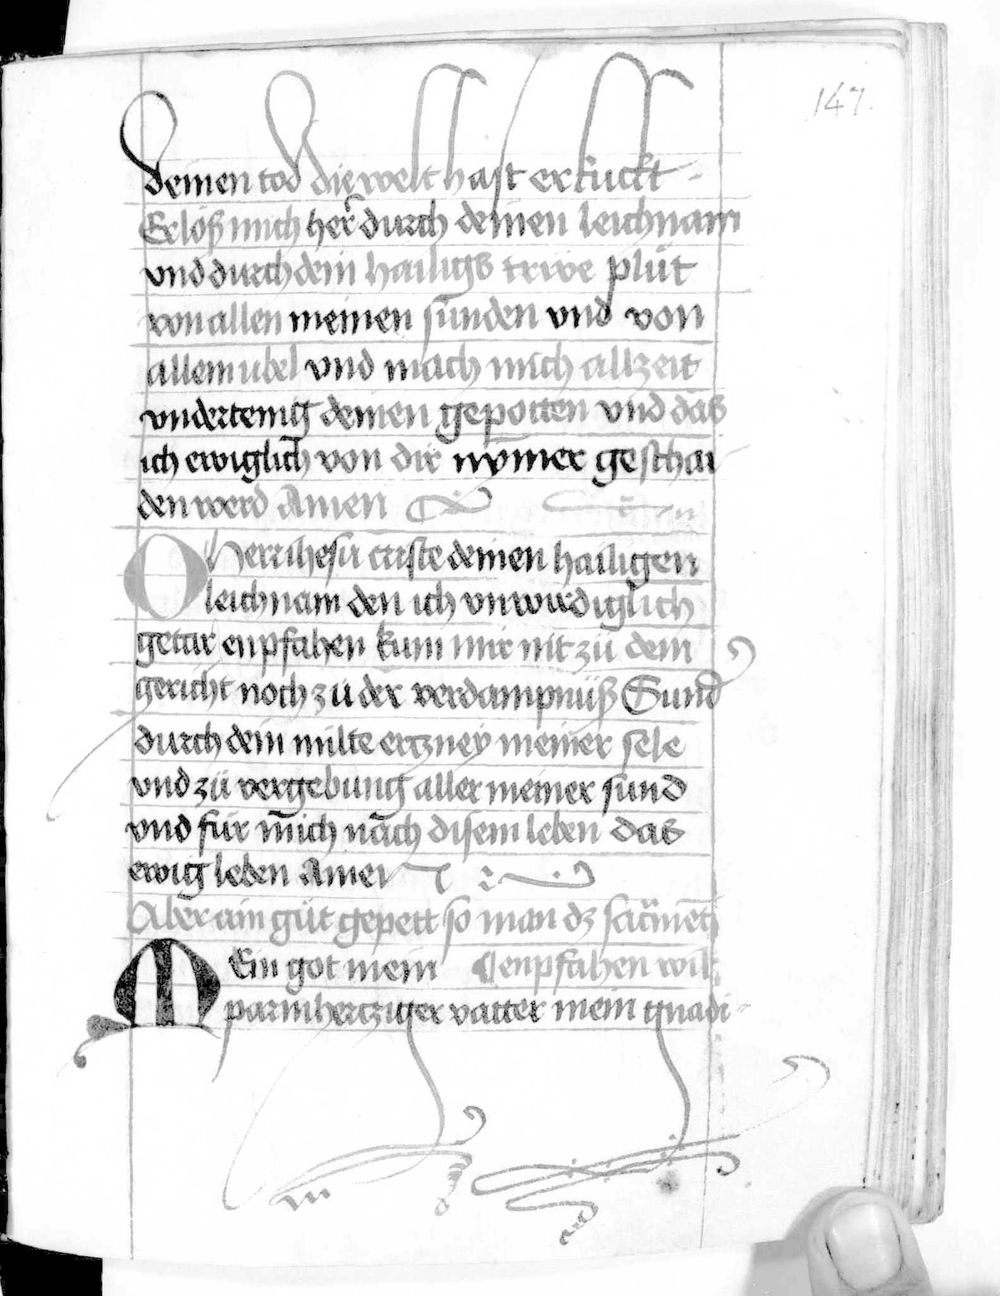 147.
deinen tod die welt hast erkückt
Erlöß mich her̃ durch deinen leichnam
vnd durch dein hailigs trwe plüt
von allen meinen sünden vnd von
allem ubel vnd mach mich allzeit
vndertenig deinen gepotten vnd das
ich ewiglich von dir nymer geschai
den werd Amen
O herr ihesu criste deinen hailigen
leichnam den ich vnwirdiglich
getar enpfahen kum mir nit zü dem
gericht noch zü der verdampnüß Sund
durch dein milte ertzney meiner sele
vnd zü vergebung aller meiner sünd
vnd für mich nach disem leben das
ewig leben Amen
Aber ain güt gepett so man dz sacramēt
MEin got mein ¶ enpfahen wil
parmhertziger vatter mein gnadi